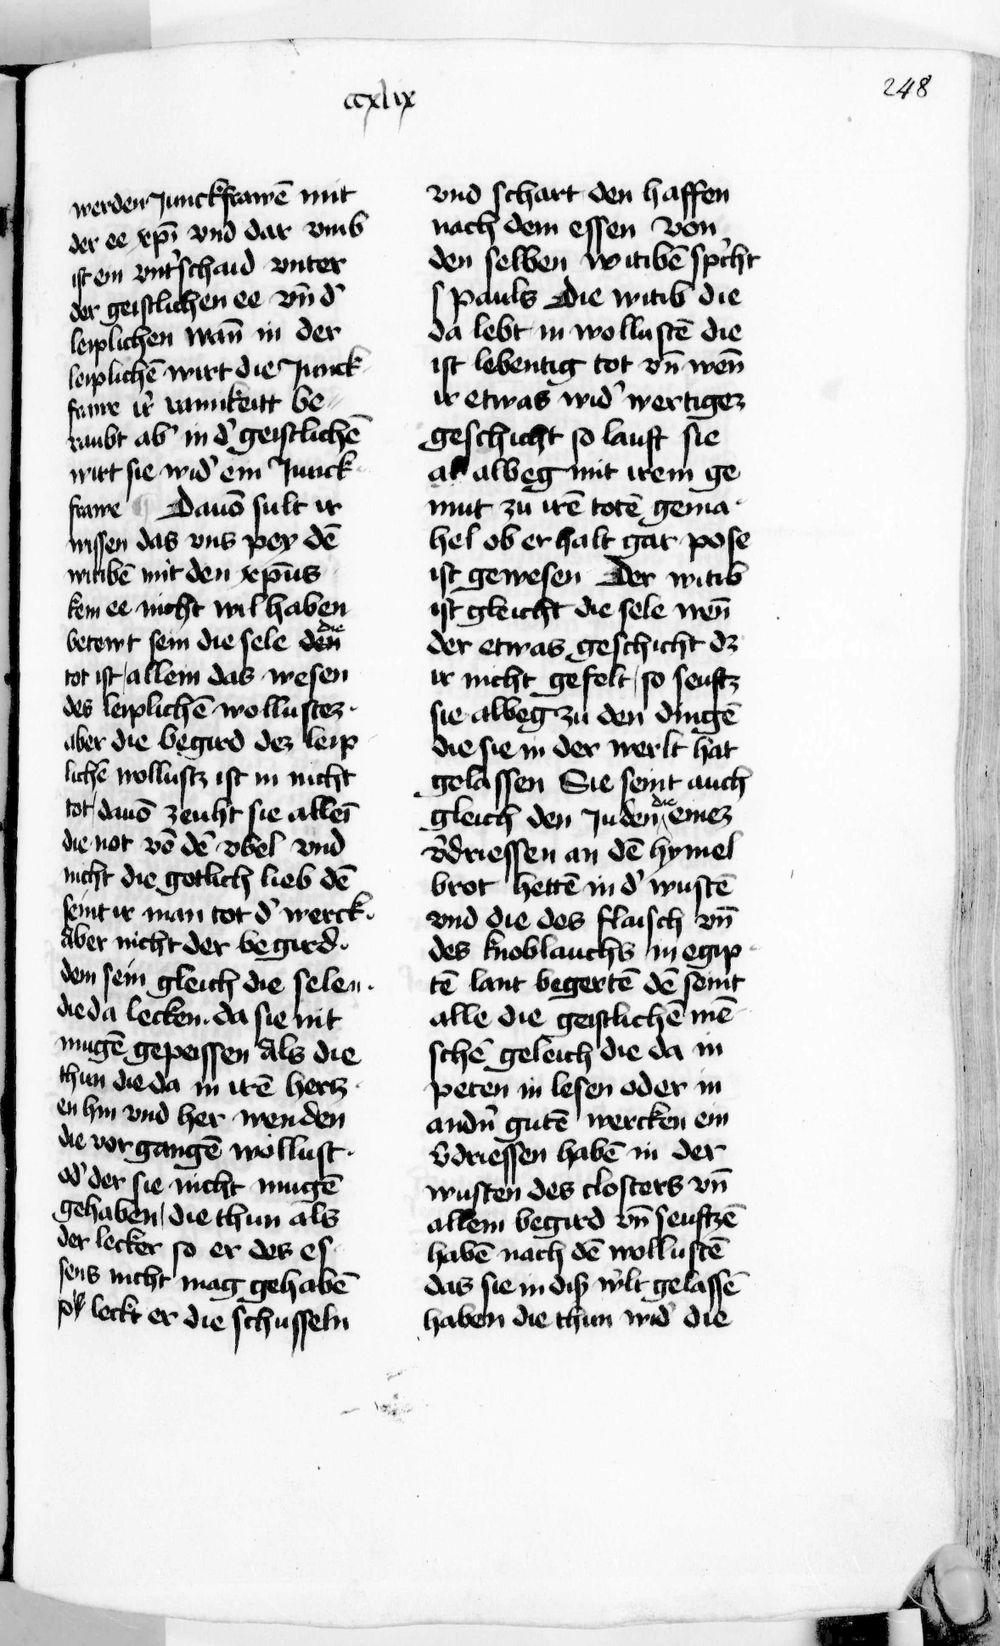 ccxlix
248
werden Junckfrawē mit
der ee xp̄i vnd dar vmb
ist ein vnt̾schaid vnter
der geistlichen ee vn̄ d̾
leiplichen wan̄ in der
leiplichē wirt die Junck
frawe ir̾ rainikeitt be〃
raubt ab̾ in d̾ geistlichē
wirt sie wid̾ ein Junck
frawe Dauō sult ir
wissen das vns pey dē
witibē mit den xp̄us
kein ee nicht wil haben
betewt sein die sele den die
tot ist / allein das wesen
des leiplichē wollustez
aber die begird dez leip
lichē wollustz ist in nicht
tot / dauō zeuht sie alleī
die not vō dē vbel vnd
nicht die gotlich lieb dē
seint ir man tot d̾ werck
Aber nicht der begird
dem sein gleich die selen
die da lecken da sie nit
mugē gepeissen Als die
thun die da in irē hertz
en hin vnd her wenden
die vorgangē wollust
od̾ der sie nicht mugē
gehaben / die thun als
der lecker so er des es
sens nicht mag gehabē
leckt er die schusseln
vnd schart den haffen
nach dem essen Von
den selben witibē sp̾cht
s pauls Die witib die
da lebt in wollustē die
ist lebentig tot vn̄ wen̄
ir etwas wid̾ wertigez
geschicht so lauft sie
albeg mit irem ge
mut zu irē totē gema
hel ob er halt gar pose
ist gewesen Der witib
ist gleicht die sele wen̄
der etwas geschicht dz
ir nicht gefelt / so seuftz
sie albeg zu den dingē
die sie in der werlt hat
gelassen Sie seint auch
gleich den Juden die einez
v̾driessen an dē hymel
brot hettē in d̾ wustē
vnd die des flaisch vn̄
des knoblauchs in egip
tē lant begertē dē seint
alle die geistlichē mē
schē geleich die da in
peten in lesen oder in
andn̾ gutē wercken ein
v̾driessen habē in der
wusten des closters vn̄
allein begird vn̄ seuftzē
habē nach dē wollustē
das sie in diß w̾lt gelassē
haben die thun wid̾ die